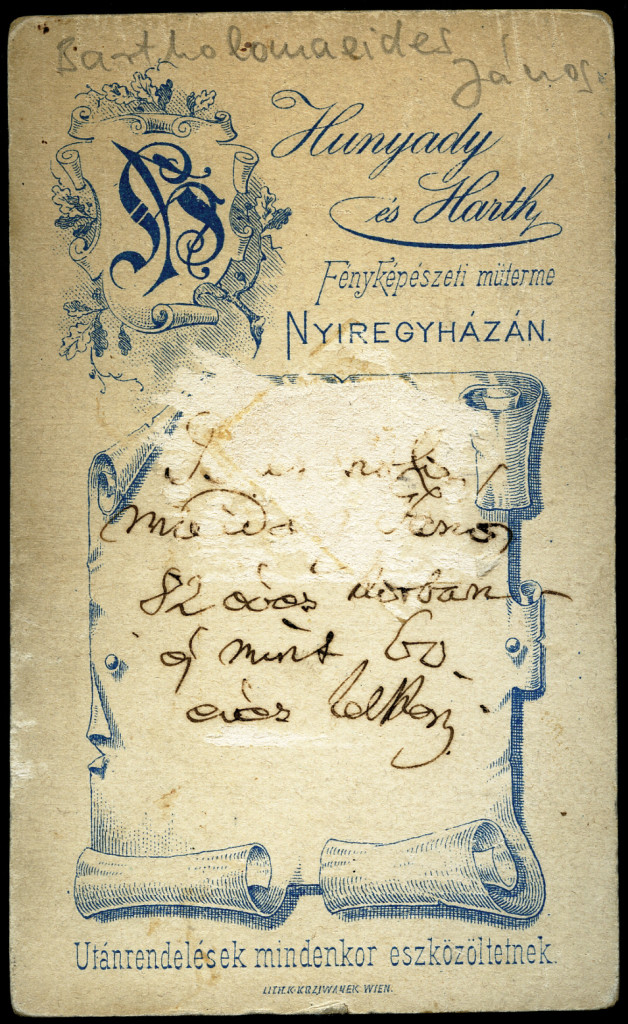 Bartholomaeides
János.
Hunyady
és Harth
Fényképészeti müterme
NYIREGYHÁZÁN.
82 éves korban
és mint 60
éves lelkész.
Utánrendelések mindenkor eszközöltetnek.
LITH. K. KRZIWANEK WIEN.